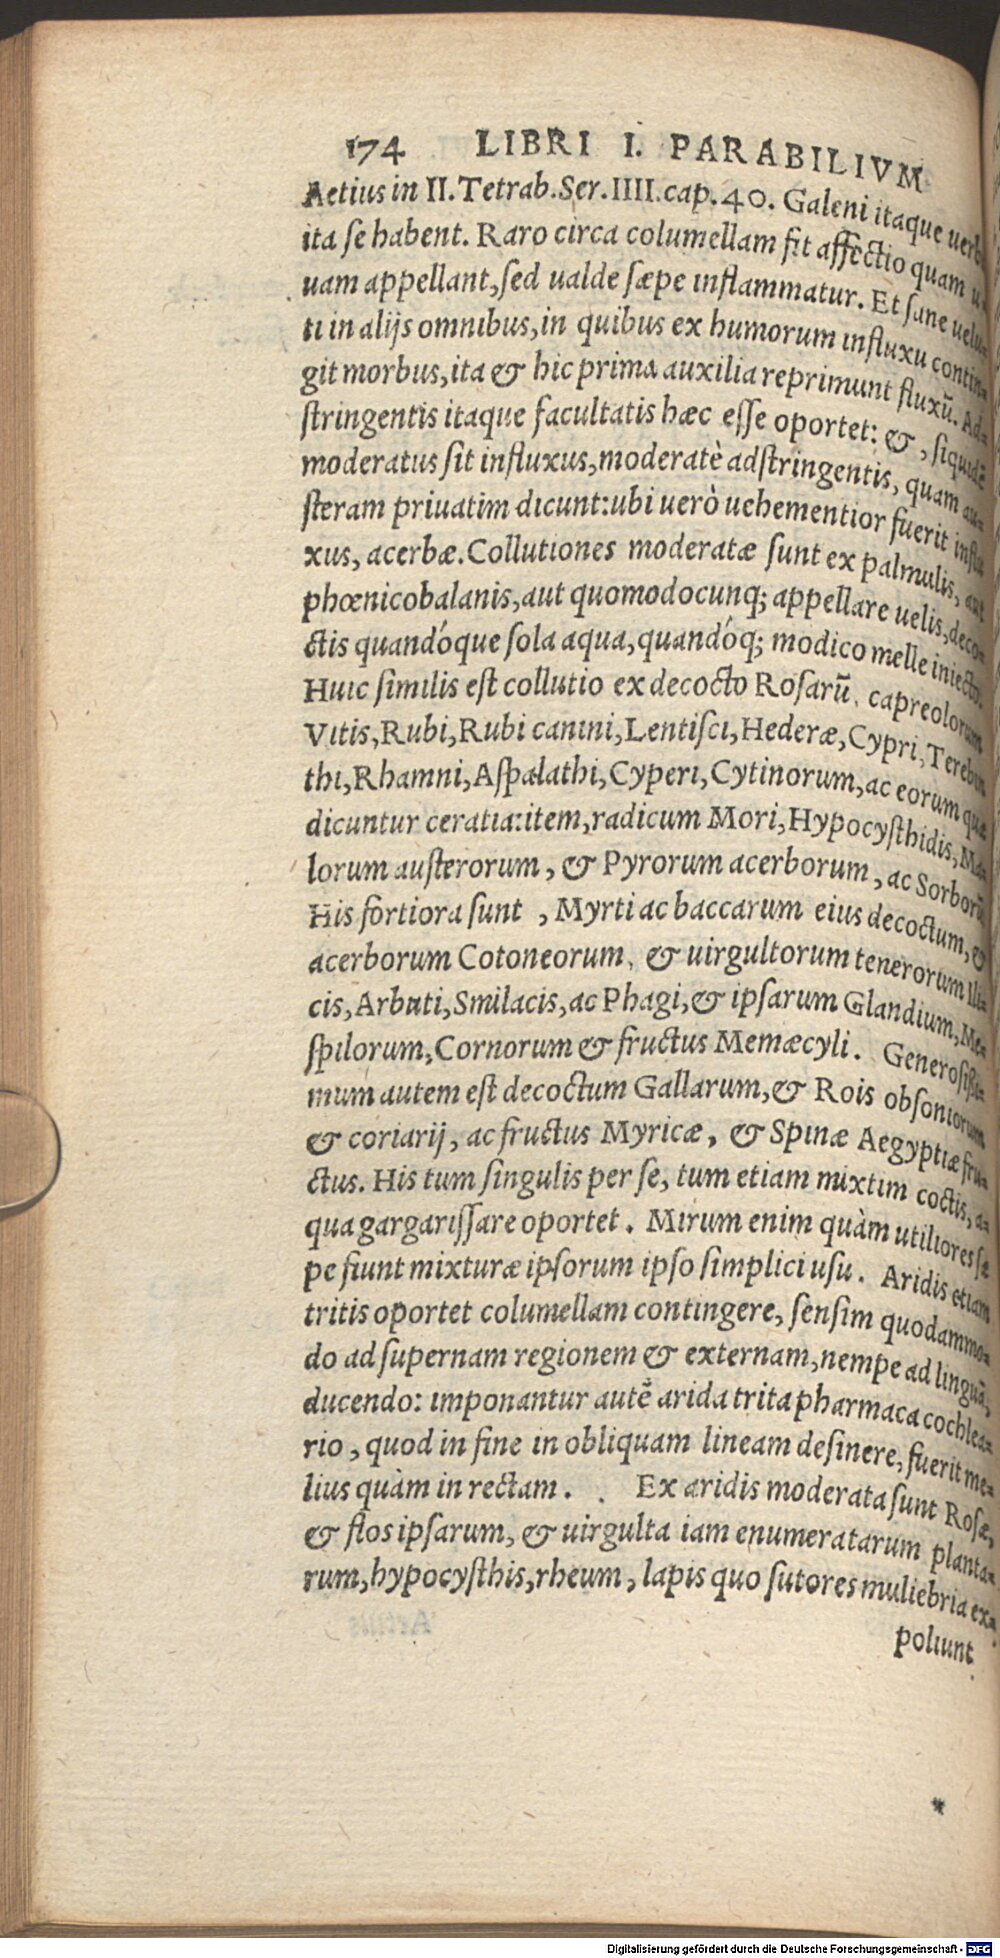 174 LIBRI I. PARABILIVM
Aetius in II. Tetrab. Ser. IIII. cap. 40. Galeni itaque uerb
ita se habent. Raro circa columellam fit affectio quam u-
uam appellant, sed ualde sæpe inflammatur. Et sane uelu-
ti in alijs omnibus, in quibus ex humorum influxu contin-
git morbus, ita & hic prima auxilia reprimunt fluxũ. Ad-
stringentis itaque facultatis hæc esse oportet: &, siquidẽ
moderatus sit influxus, moderatè adstringentis, quam au-
steram priuatim dicunt: ubi uerò uehementior fuerit influ
xus, acerbæ. Collutiones moderatæ sunt ex palmulis, aut
phœnicobalanis, aut quomodocunq; appellare uelis, deco-
ctis quandóque sola aqua, quandóq; modico melle iniecto.
Huic similis est collutio ex decocto Rosarũ, capreolorum
Vitis, Rubi, Rubi canini, Lentisci, Hederæ, Cypri, Terebin
thi, Rhamni, Aspalathi, Cyperi, Cytinorum, ac eorum quæ
dicuntur ceratia: item, radicum Mori, Hypocysthidis, Ma-
lorum austerorum, & Pyrorum acerborum, ac Sorborũ
His fortiora sunt, Myrti ac baccarum eius decoctum, &
acerborum Cotoneorum, & uirgultorum tenerorum Ili-
cis, Arbuti, Smilacis, ac Phagi, & ipsarum Glandium, Me-
spilorum, Cornorum & fructus Memæcyli. Generosissi-
mum autem est decoctum Gallarum, & Rois obsoniorum
& coriarij, ac fructus Myricæ, & Spinæ Aegyptiæ fru-
ctus. His tum singulis per se, tum etiam mixtim coctis, a-
qua gargarissare oportet. Mirum enim quàm utiliores sæ
pe fiunt mixturæ ipsorum ipso simplici usu. Aridis etiam
tritis oportet columellam contingere, sensim quodammo-
do ad supernam regionem & externam, nempe ad linguã,
ducendo: imponantur autẽ arida trita pharmaca cochlea-
rio, quod in fine in obliquam lineam desinere, fuerit me-
lius quàm in rectam. Ex aridis moderata sunt Rosæ,
& flos ipsarum, & uirgulta iam enumeratarum planta-
rum, hypocysthis, rheum, lapis quo sutores muliebria ex-
poliunt
Digitalisierung gefördert durch die Deutsche Forschungsgemeinschaft - DFG